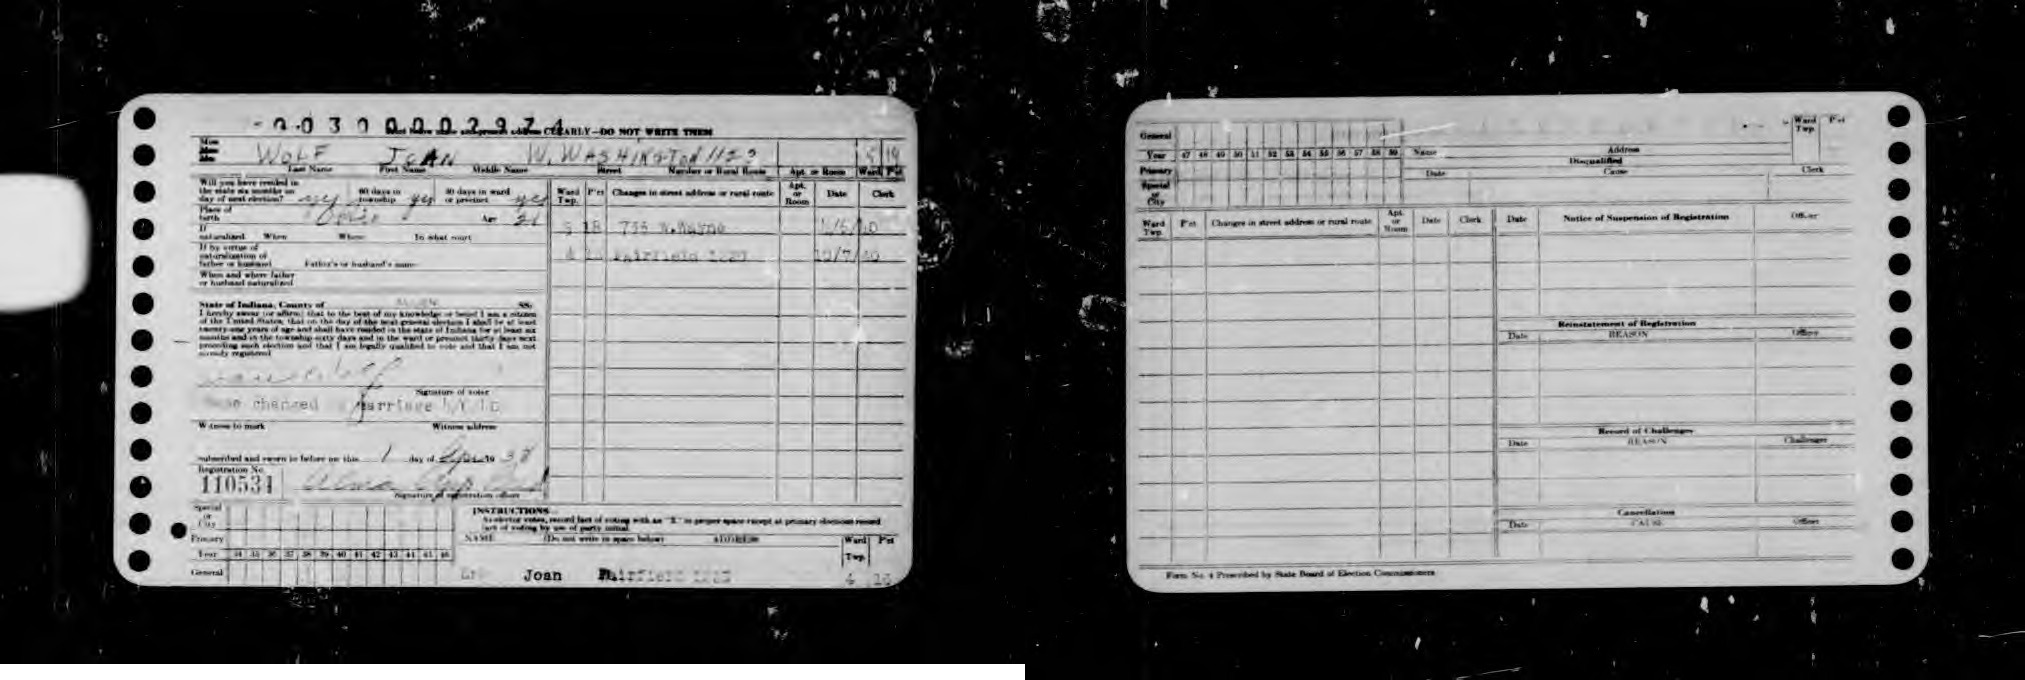 Print below name and present address CLEARLY—DO NOT WRITE THEM
WOLF JOAN W. WASHINGTON 1123 5 19
Last Name First Name Middle Name Street Number or Rural Route Apt. or Room Ward Pct
Will you have resided in the state six months on day of next election? yes 60 days in township yes 30 days in ward or precinct yes
Place of birth Ohio Age 21
If naturalized When Where In what court
If by virtue of naturalization of father or husband Father's or husband's name
When and where father or husband naturalized
State of Indiana, County of ALLEN SS:
I hereby swear (or affirm) that to the best of my knowledge or belief I am a citizen
of the United States, that on the day of the next general election I shall be at least
twenty-one years of age and shall have resided in the state of Indiana for at least six
months and in the township sixty days and in the ward or precinct thirty days next
preceding such election and that I am legally qualified to vote and that I am not
already registered
Signature of voter
Name changed marriage
Witness to mark Witness address
Subscribed and sworn to before on this 1 day of Apr 19 38
Registration No.
110534
Signature of registration officer
Ward Twp. P'ct Changes in street address or rural route Apt. or Room Date Clerk
18 W. Wayne
Fairfield 10/7/40
Special or City
Primary
Year 34 35 36 37 38 39 40 41 42 43 44 45 46
General
INSTRUCTIONS
As elector votes, record fact of voting with an "X" in proper space except at primary elections record
fact of voting by use of party initial
NAME (Do not write in space below) ADDRESS Ward Twp. P'ct
Joan Fairfield
General
Year 47 48 49 50 51 52 53 54 55 56 57 58 59
Primary
Special or City
Name Address Ward Twp. P'ct
Disqualified
Date Cause Clerk
Ward Twp. P'ct Changes in street address or rural route Apt. or Room Date Clerk
Date Notice of Suspension of Registration Officer
Reinstatement of Registration
Date REASON Officer
Record of Challenges
Date REASON Challenger
Cancellation
Date CAUSE Officer
Form No. 4 Prescribed by State Board of Election Commissioners